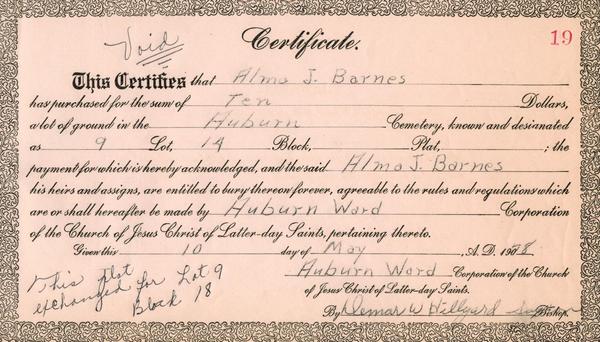 Void
Certificate.
19
This Certifies that Alma J. Barnes
has purchased for the sum of Ten Dollars,
a lot of ground in the Auburn Cemetery, known and desianated
as 9 Lot, 14 Block, Plat, ; the
payment for which is hereby acknowledged, and the said Alma J. Barnes
his heirs and assigns, are entitled to bury thereon forever, agreeable to the rules and regulations which
are or shall hereafter be made by Auburn Ward Corporation
of the Church of Jesus Christ of Latter-day Saints, pertaining thereto.
Given this 10 day of May , A. D. 1928.
Auburn Ward Corporation of the Church
of Jesus Christ of Latter-day Saints.
By Demar W Hillyard Bishop.
This plot
exchanged for Lot 9
Block 18